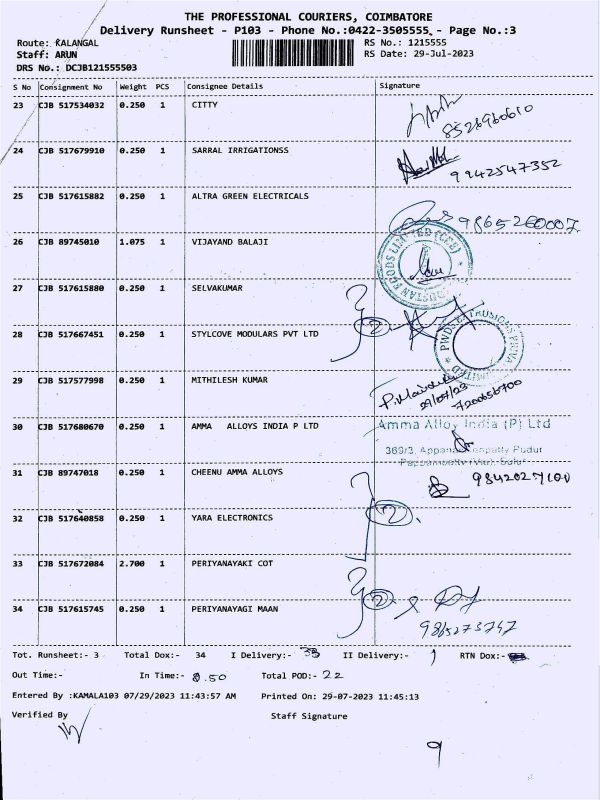 THE PROFESSIONAL COURIERS, COIMBATORE
Delivery Runsheet - P103 - Phone No.:0422-3505555, - Page No.:3
Route: KALANGAL RS No.: 1215555
Staff: ARUN RS Date: 29-Jul-2023
DRS No.: DCJB121555503
S No Consignment No Weight PCS Consignee Details Signature
23 CJB 517534032 0.250 1 CITTY
8526960610
24 CJB 517679910 0.250 1 SARRAL IRRIGATIONSS
9942547352
25 CJB 517615882 0.250 1 ALTRA GREEN ELECTRICALS
9865260007
26 CJB 89745010 1.075 1 VIJAYAND BALAJI
27 CJB 517615880 0.250 1 SELVAKUMAR
2
28 CJB 517667451 0.250 1 STYLCOVE MODULARS PVT LTD
29 CJB 517577998 0.250 1 MITHILESH KUMAR
29/07/23
30 CJB 517680670 0.250 1 AMMA ALLOYS INDIA P LTD
Amma Alloy India (P) Ltd
369/3, Pudur
31 CJB 89747018 0.250 1 CHEENU AMMA ALLOYS
9842027100
32 CJB 517640858 0.250 1 YARA ELECTRONICS
2
33 CJB 517672084 2.700 1 PERIYANAYAKI COT
34 CJB 517615745 0.250 1 PERIYANAYAGI MAAN
2
9865273747
Tot. Runsheet:- 3 Total Dox:- 34 I Delivery:- 33 II Delivery:- 1 RTN Dox:-
Out Time:- In Time:- 8.50 Total POD:- 22
Entered By :KAMALA103 07/29/2023 11:43:57 AM Printed On: 29-07-2023 11:45:13
Verified By Staff Signature
9